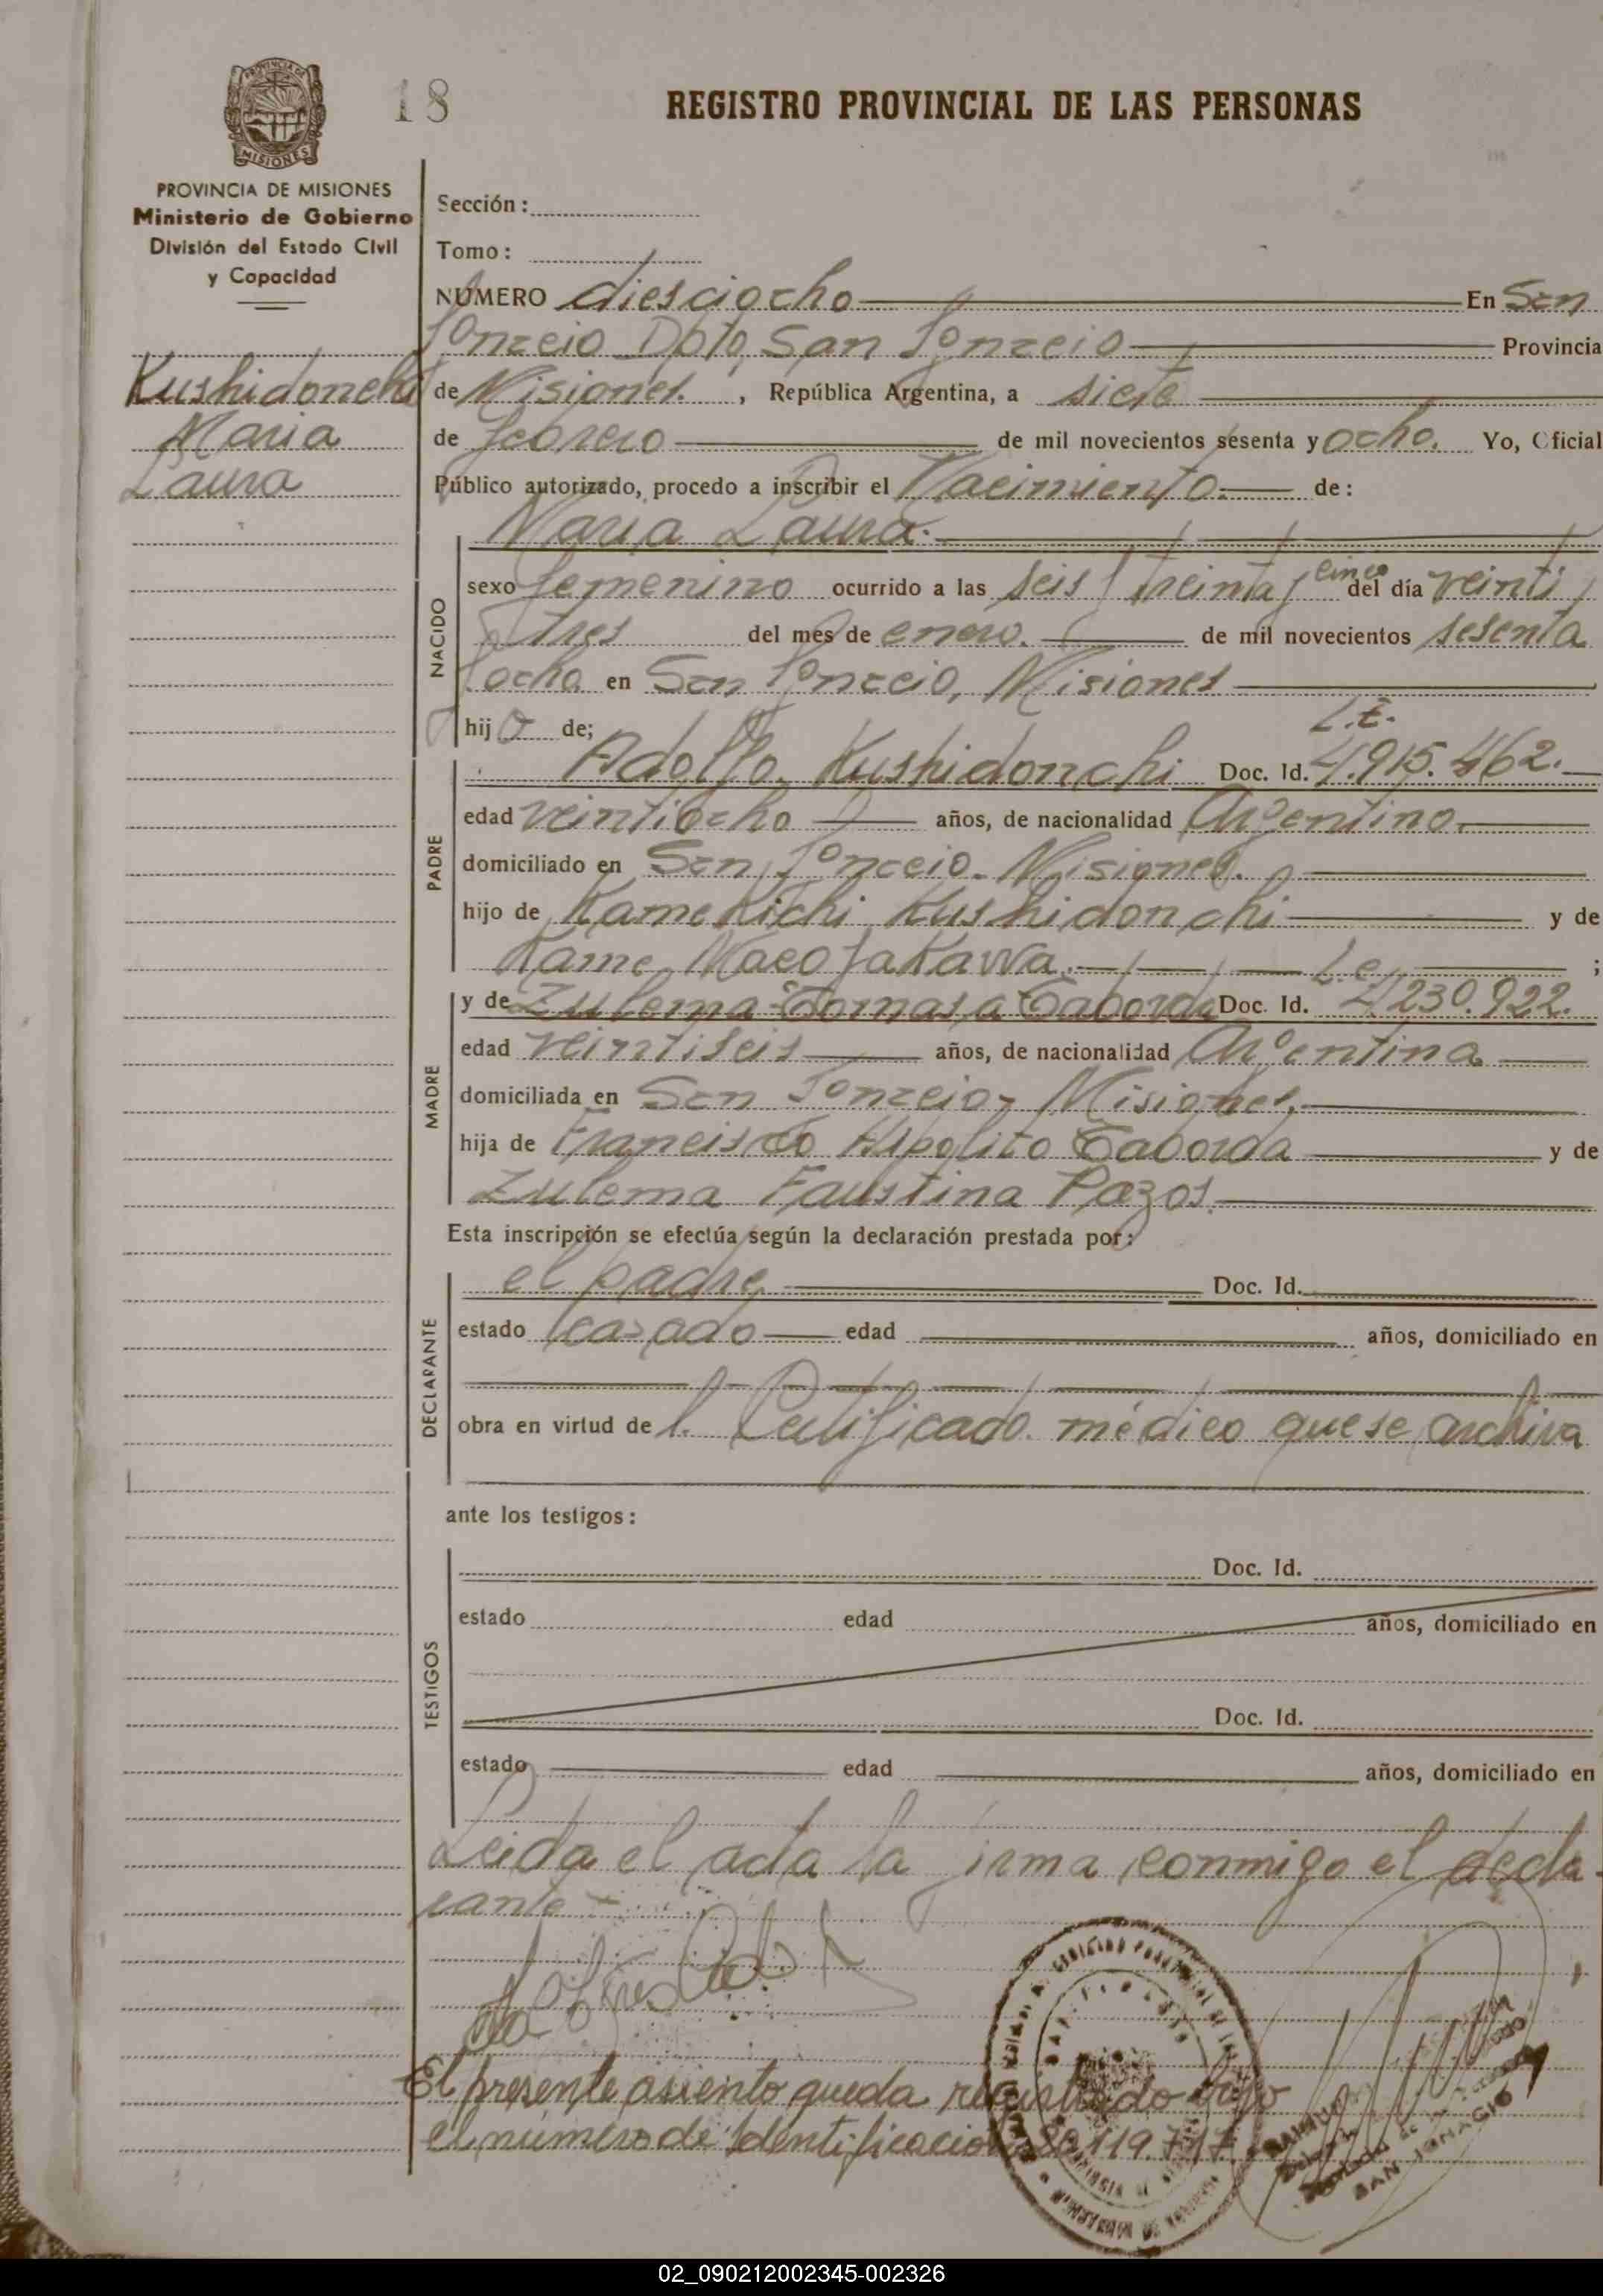 PROVINCIA DE MISIONES
18
REGISTRO PROVINCIAL DE LAS PERSONAS
PROVINCIA DE MISIONES
Ministerio de Gobierno
División del Estado Civil
y Capacidad
Kushidonchi
Maria
Laura
Sección:
Tomo:
NUMERO diesciocho En San
Ignacio Dpto, San Ignacio Provincia
de Misiones. , República Argentina, a siete
de febrero de mil novecientos sesenta y ocho. Yo, Oficial
Público autorizado, procedo a inscribir el Nacimiento. de:
Maria Laura.
NACIDO
sexo femenino ocurrido a las seis y treinta y cinco del día veinti
tres del mes de enero. de mil novecientos sesenta
y ocho en San Ignacio, Misiones
hija de;
L.E.
PADRE
Adolfo Kushidonchi Doc. Id. 7.915.462.
edad veintiocho años, de nacionalidad Argentino.
domiciliado en San Ignacio. Misiones.
hijo de Kamekichi Kushidonchi y de
Kame ;
L.C.
MADRE
y de Zulema Tomasa Taborda Doc. Id. 4230.922.
edad veintiseis años, de nacionalidad Argentina
domiciliada en San Ignacio, Misiones.
hija de Francisco Hipolito Taborda y de
Zulema Faustina Pazos.
Esta inscripción se efectúa según la declaración prestada por:
DECLARANTE
el padre, Doc. Id.
estado casado edad años, domiciliado en
obra en virtud de l. Certificado médico que se archiva
ante los testigos:
TESTIGOS
Doc. Id.
estado edad años, domiciliado en
Doc. Id.
estado edad años, domiciliado en
Leida el acta la firma conmigo el decla-
rante
El presente asiento queda registrado bajo
el número de Identificacion 20.119.717.
SAN IGNACIO
02_090212002345-002326